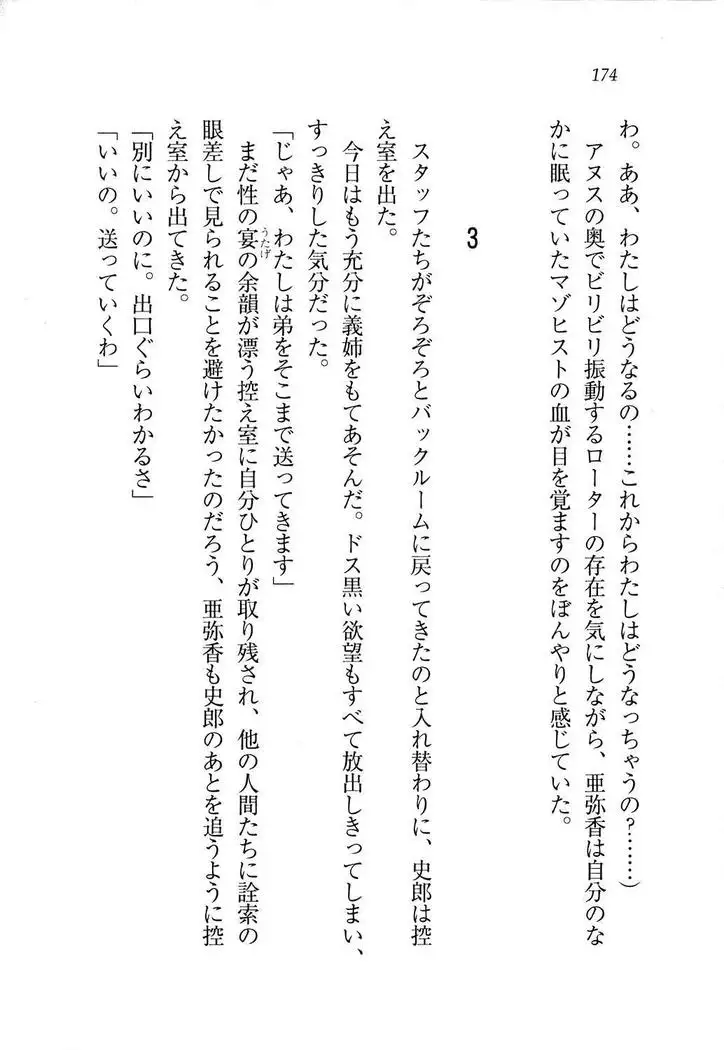 174
わ。ああ、わたしはどうなるの……これからわたしはどうなっちゃうの？……）
　アヌスの奥でビリビリ振動するローターの存在を気にしながら、亜弥香は自分のな
かに眠っていたマゾヒストの血が目を覚ますのをぼんやりと感じていた。
3
　スタッフたちがぞろぞろとバックルームに戻ってきたのと入れ替わりに、史郎は控
え室を出た。
　今日はもう充分に義姉をもてあそんだ。ドス黒い欲望もすべて放出しきってしまい、
すっきりした気分だった。
「じゃあ、わたしは弟をそこまで送ってきます」
　まだ性の宴うたげの余韻が漂う控え室に自分ひとりが取り残され、他の人間たちに詮索の
眼差しで見られることを避けたかったのだろう、亜弥香も史郎のあとを追うように控
え室から出てきた。
「別にいいのに。出口ぐらいわかるさ」
「いいの。送っていくわ」